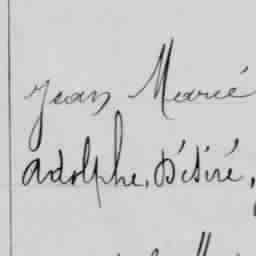 Jean Marié
adolphe, Désiré,